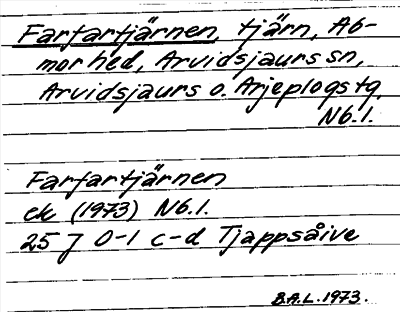 Farfartjärnen, tjärn, Ab-
morhed, Arvidsjaurs sn,
Arvidsjaurs o. Arjeplogs tg,
Nb.l.
Farfartjärnen
ek (1973) Nb.l.
25 J 0-1 c-d Tjappsåive
B.A.L. 1973.